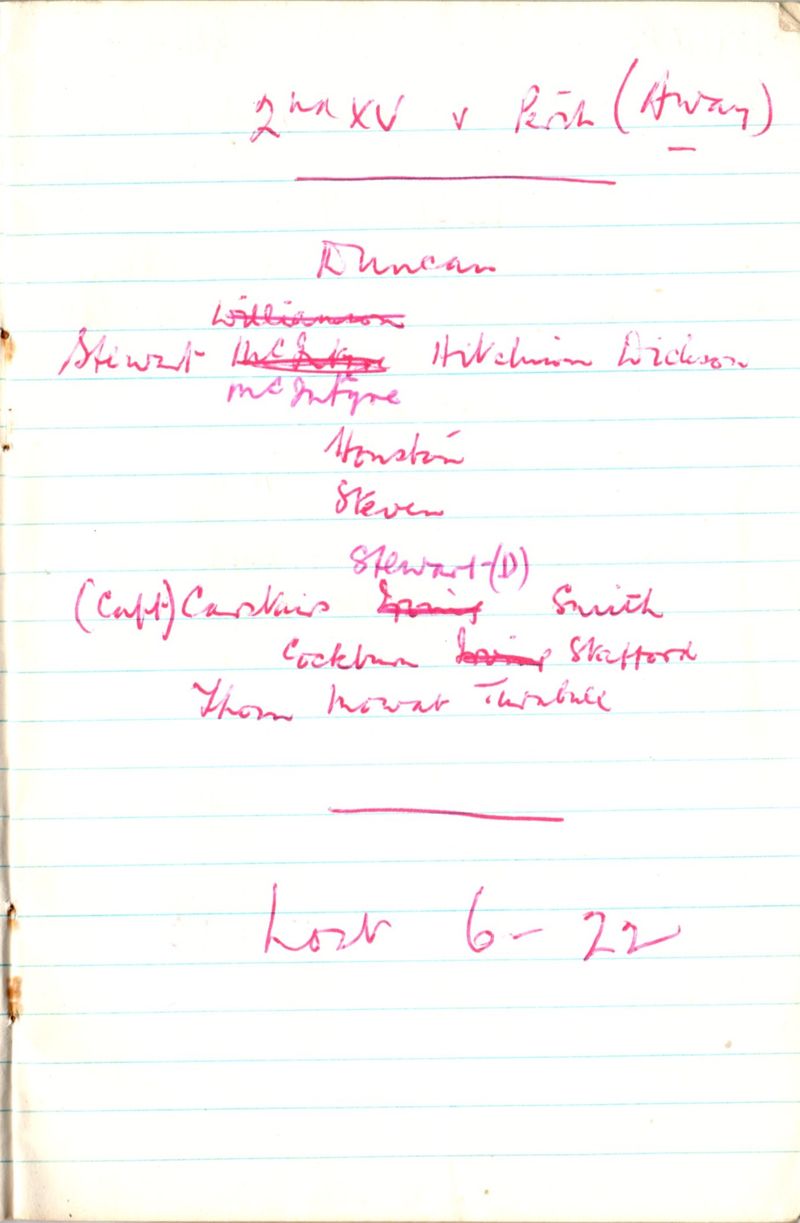 2nd XV v Perth (Away)
Duncan
Williamson
Stewart McIntyre Hitchison Dickson
McIntyre
Houston
Steven
Stewart (D)
(Capt) Carstairs Irving Smith
Cockburn Irving Stafford
Thom Mowat Turnbull
Lost 6-22